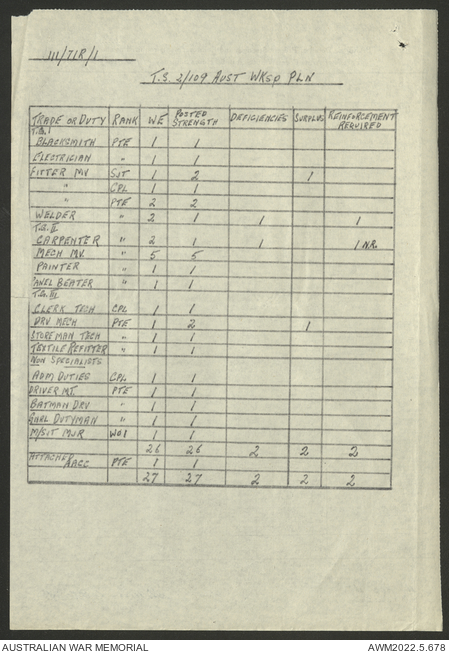 111/71R/1
T.S. 2/109 AUST WKSP PLN
TRADE OR DUTY RANK WE POSTED STRENGTH DEFICIENCIES SURPLUS REINFORCEMENT REQUIRED
T.G. I
BLACKSMITH PTE 1 1
ELECTRICIAN " 1 1
FITTER MV SJT 1 2 1
" CPL 1 1
" PTE 2 2
WELDER " 2 1 1 1
T.G. II
CARPENTER " 2 1 1 1 N.R.
MECH MV. " 5 5
PAINTER " 1 1
PANEL BEATER " 1 1
T.G. III
CLERK TECH CPL 1 1
DRV MECH PTE 1 2 1
STOREMAN TECH " 1 1
TEXTILE REFITTER " 1 1
NON SPECIALISTS
ADM DUTIES CPL 1 1
DRIVER MT. PTE 1 1
BATMAN DRV " 1 1
GNRL DUTYMAN " 1 1
M/SJT MJR WO1 1 1
26 26 2 2 2
ATTACHED
AACC PTE 1 1
27 27 2 2 2
AUSTRALIAN WAR MEMORIAL AWM2022.5.678